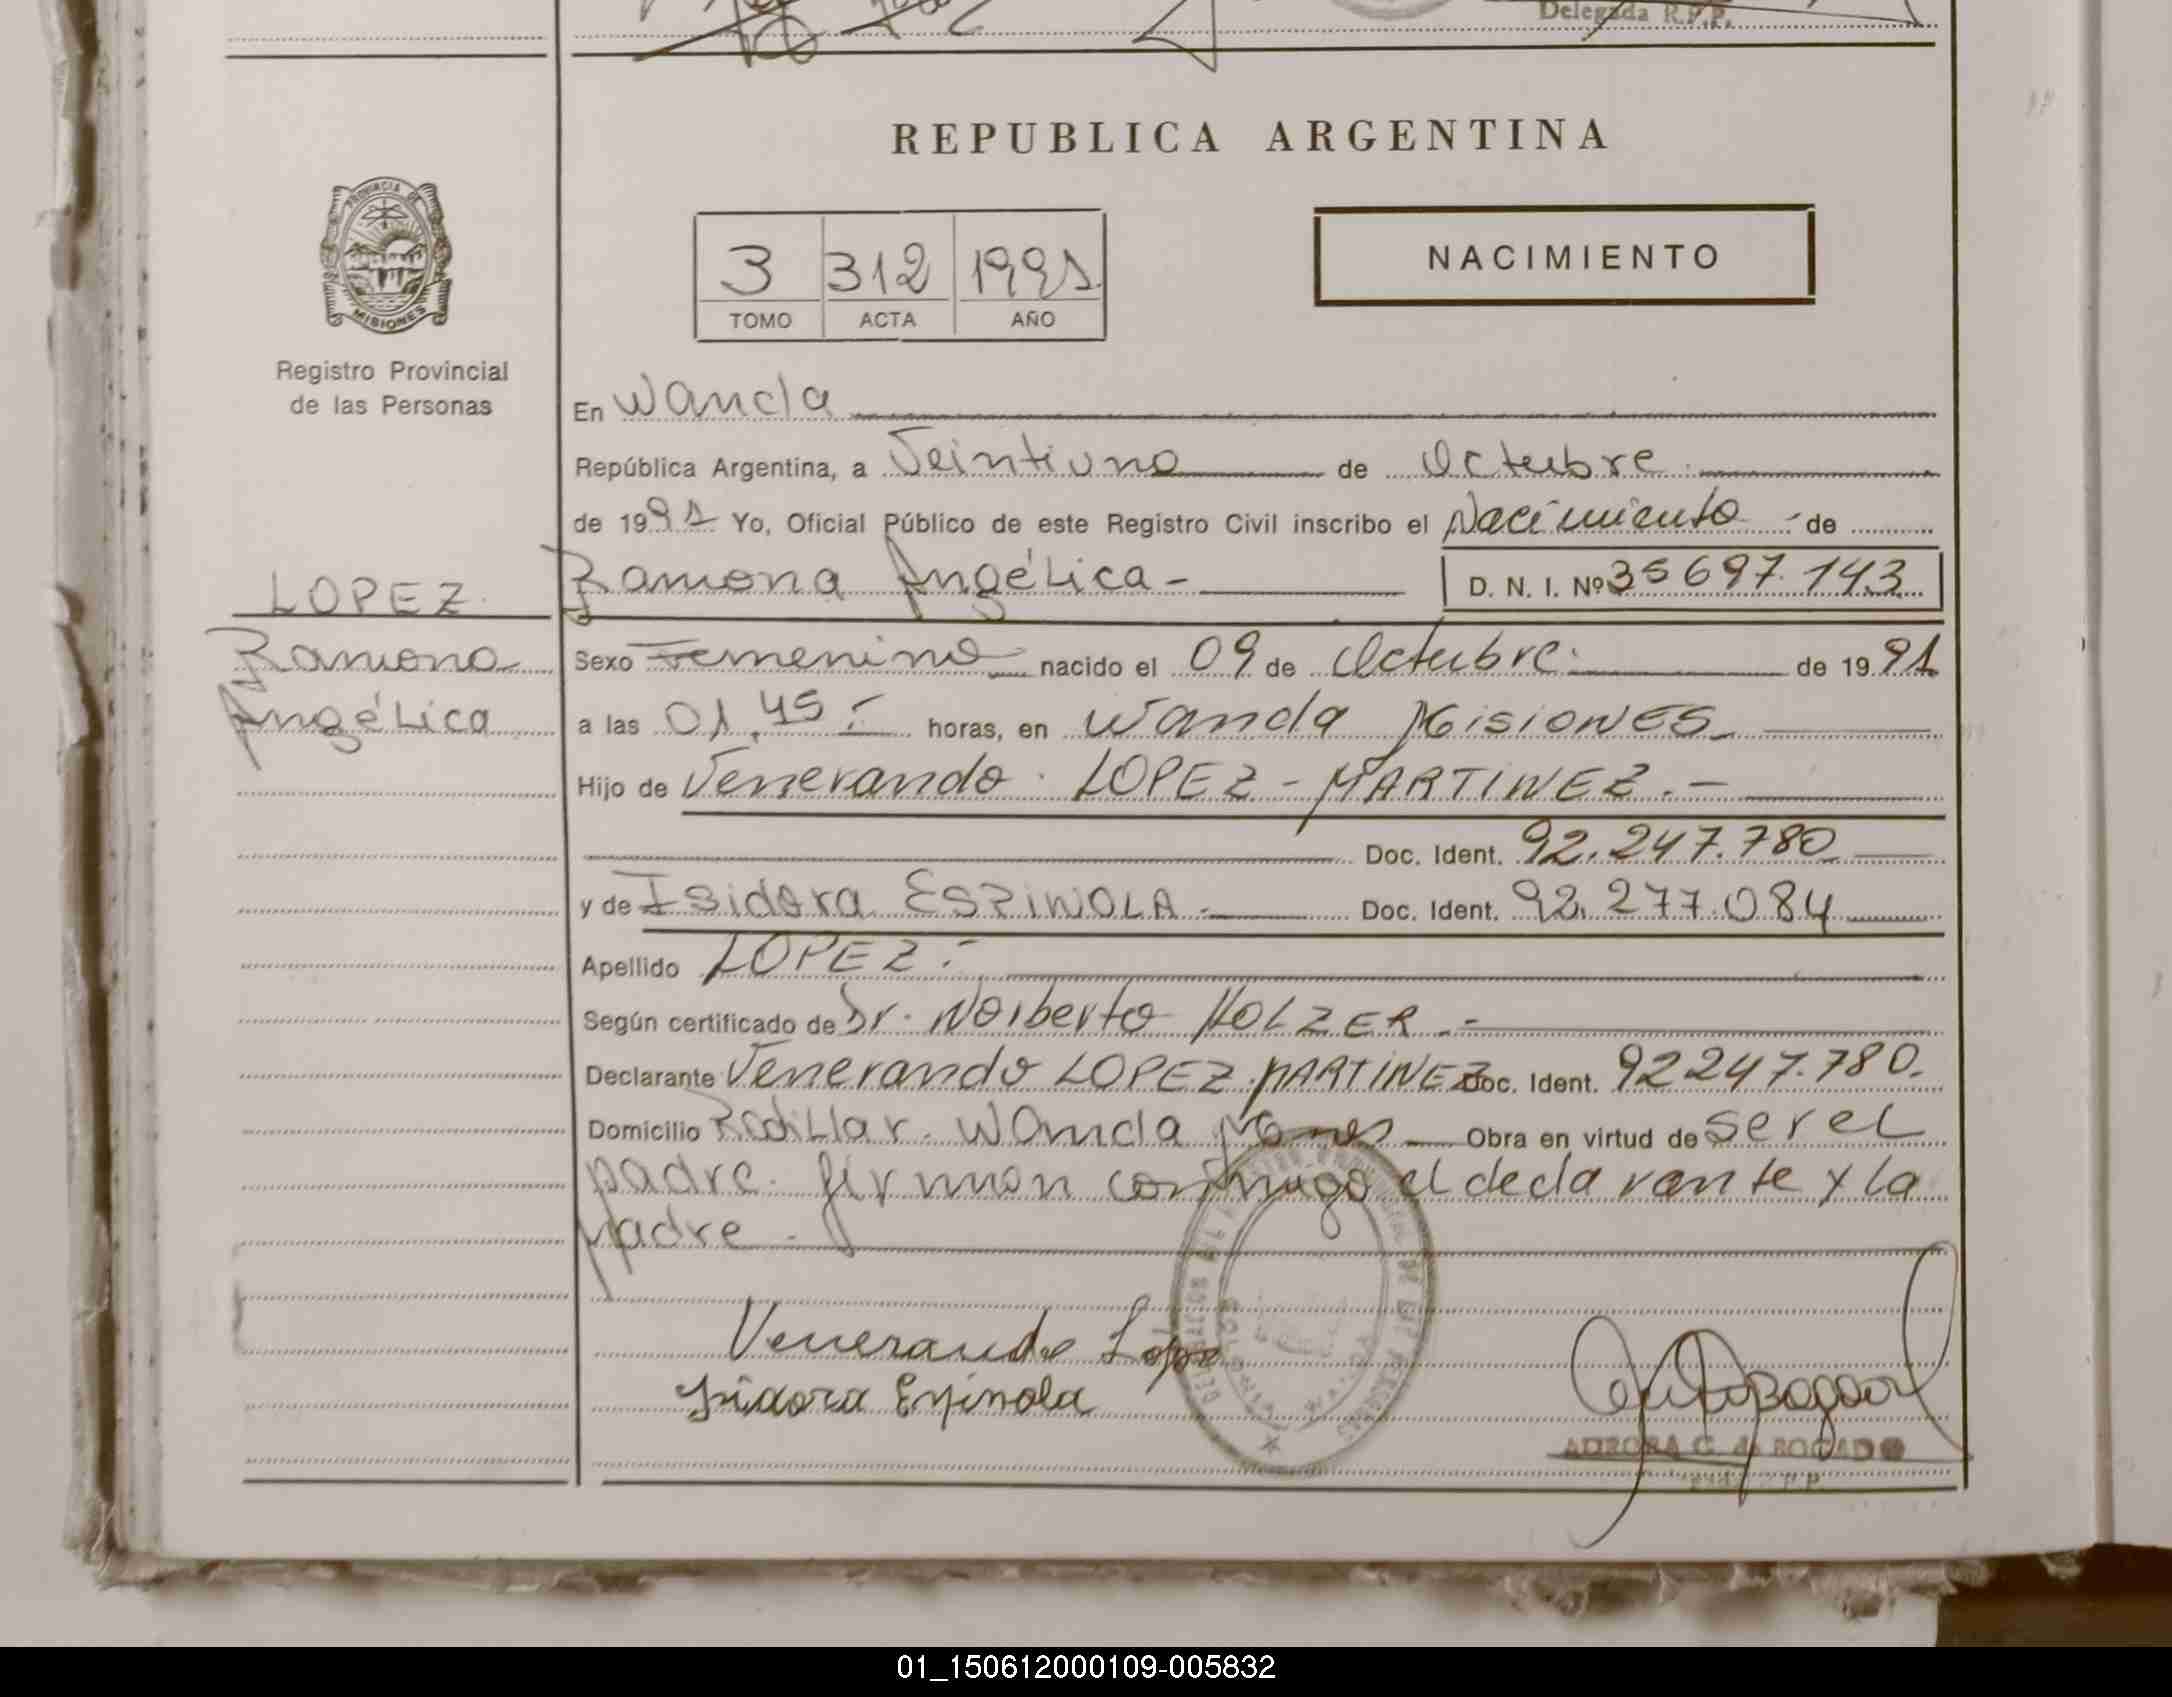 Delegada R.P.P.
REPUBLICA ARGENTINA
PROVINCIA DE
MISIONES
Registro Provincial
de las Personas
3 312 1991
TOMO ACTA AÑO
NACIMIENTO
En Wanda
República Argentina, a Veintiuno de Octubre
de 1991 Yo, Oficial Público de este Registro Civil inscribo el Nacimiento de
LOPEZ
Ramona Angélica
Ramona Angélica - D. N. I. Nº 35697.143
Sexo Femenino nacido el 09 de Octubre de 1991
a las 01,45 horas, en Wanda Misiones
Hijo de Venerando LOPEZ - MARTINEZ.-
Doc. Ident. 92.247.780
y de Isidora ESPINOLA - Doc. Ident. 92.277.084
Apellido LOPEZ.-
Según certificado de Dr. Norberto HOLZER.-
Declarante Venerando LOPEZ MARTINEZ Doc. Ident. 92247.780.
Domicilio Wanda Obra en virtud de ser el
padre. firman conmigo el declarante y la
madre.
Venerando Lopez
Isidora Espinola
AURORA C. de BOGADO
01_150612000109-005832